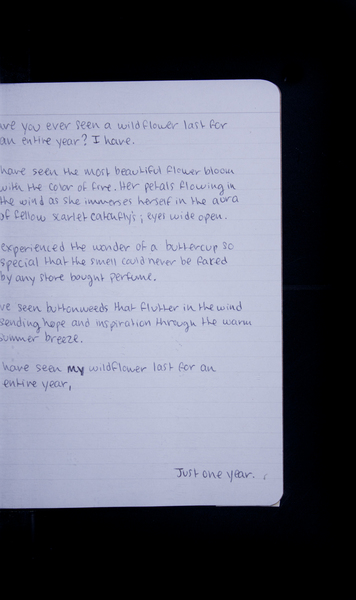 are you ever seen a wildflower last for
an entire year? I have.
have seen the most beautiful flower bloom
with the color of fire. Her petals flowing in
the wind as she immerses herself in the aura
of fellow scarlet catchfly's; eyes wide open.
experienced the wonder of a buttercup so
special that the smell could never be faked
by any store bought perfume.
ve seen buttonweeds that flutter in the wind
sending hope and inspiration through the warm
summer breeze.
have seen my wildflower last for an
entire year,
Just one year.